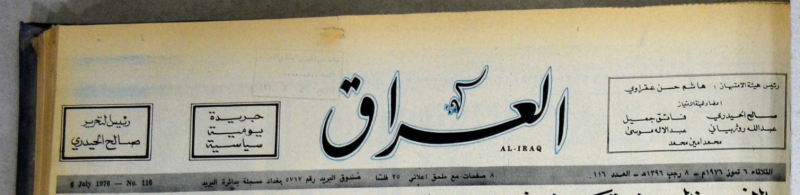 رئيس هيئة الامتياز : هاشم حسن عقراوي
اعضاء هيئة الامتياز
صالح الحيدري فائق جميل
عبدالله روژبياني عبدالاله موسى
محمد امين محمد
العراق
AL-IRAQ
جريدة
يومية
سياسية
رئيس التحرير
صالح الحيدري
الثلاثاء ٦ تموز ١٩٧٦م - ٨ رجب ١٣٩٦هـ - العدد ١١٦
٨ صفحات مع ملحق اعلاني ٢٥ فلسا صندوق البريد رقم ٥٧١٧ بغداد مسجلة بدائرة البريد
6 July 1976 — No. 116